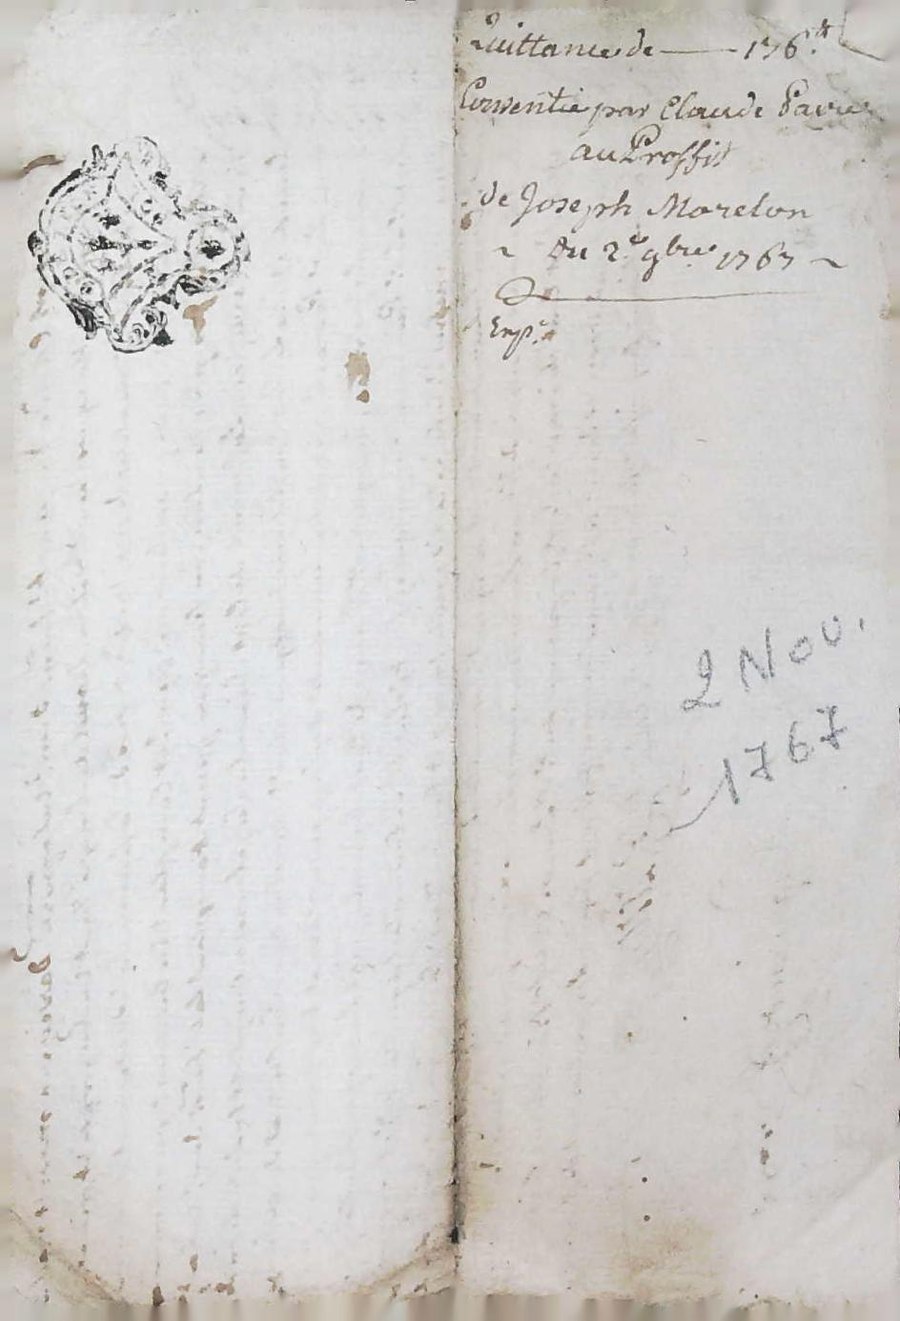 Quittance de — 176.#
Consentie par Claude
au Proffit
de Joseph Morelon
~ Du 2.e 9bre 1767 ~
Exp.e
2 Nov.
1767